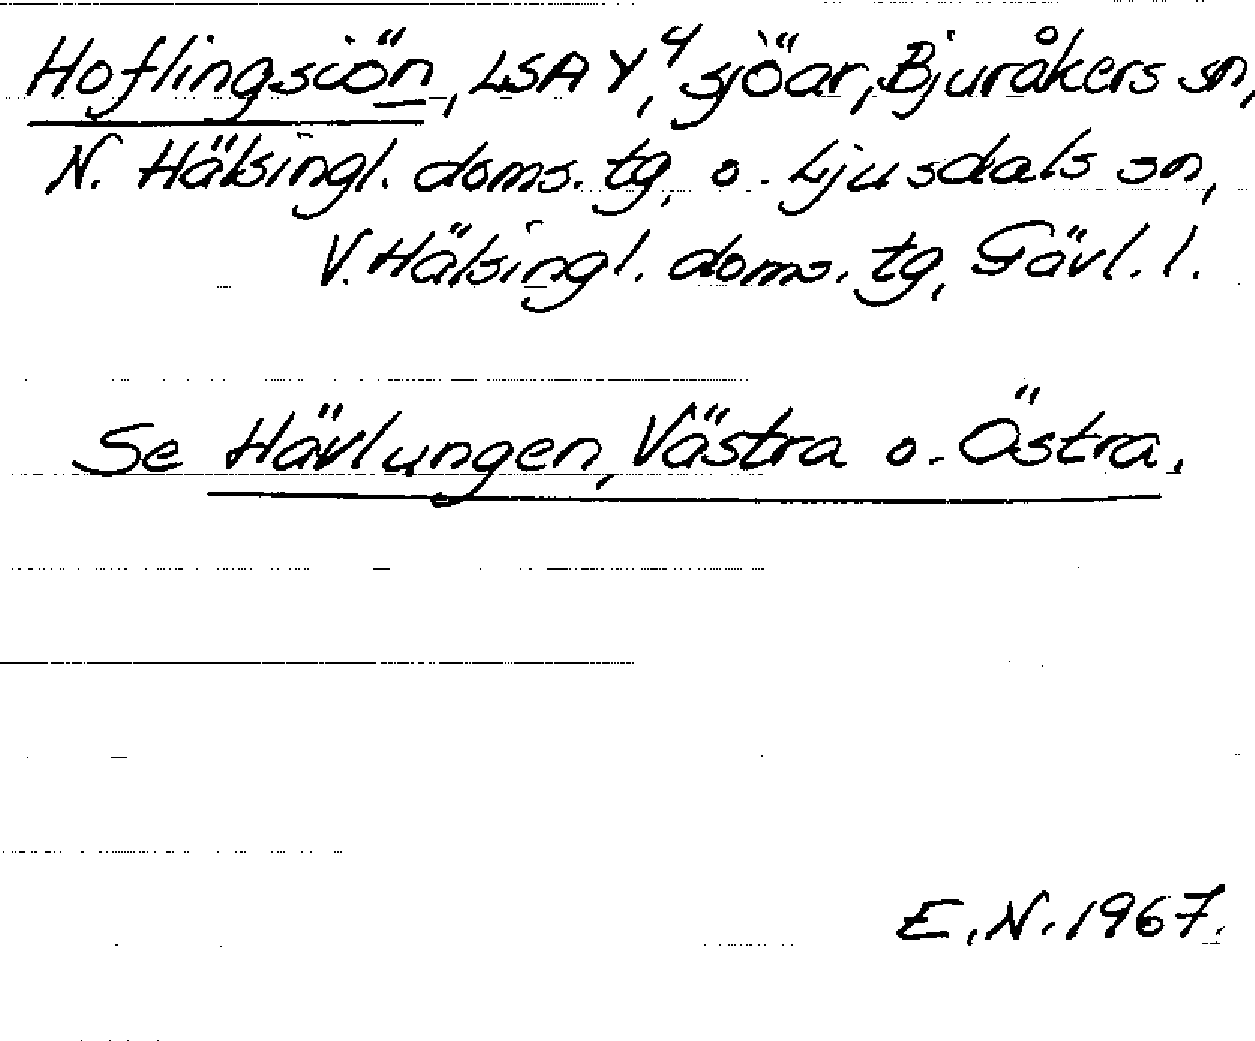 Hoflingsiön, LSA Y⁴, sjöar, Bjuråkers sn,
N. Hälsingl. doms. tg, o. Ljusdals sn,
V. Hälsingl. doms. tg, Gävl. l.
Se Hävlungen, Västra o. Östra.
E.N. 1967.